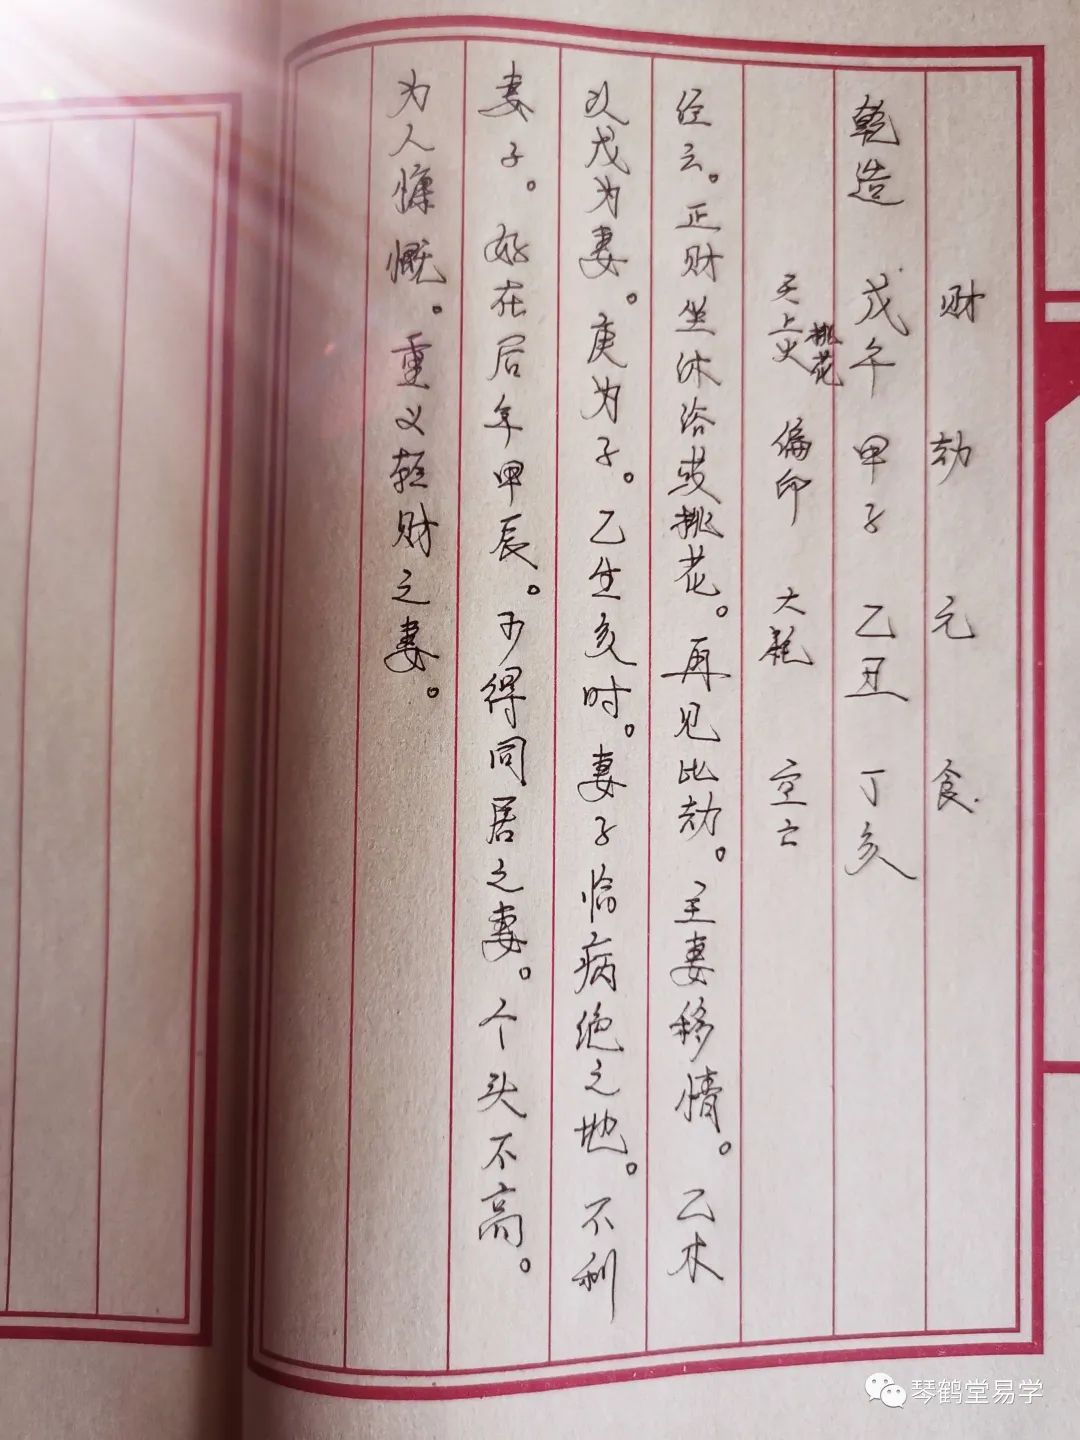 财 劫 元 食
乾造 戊午 甲子 乙丑 丁亥
桃花
天上火 偏印 大耗 空亡
经云。正财坐沐浴或桃花。再见比劫。主妻移情。乙木
以戊为妻。庚为子。乙生亥时。妻子恰病绝之地。不利
妻子。好在后年甲辰。可得同居之妻。个头不高。
为人慷慨。重义轻财之妻。
琴鹤堂易学